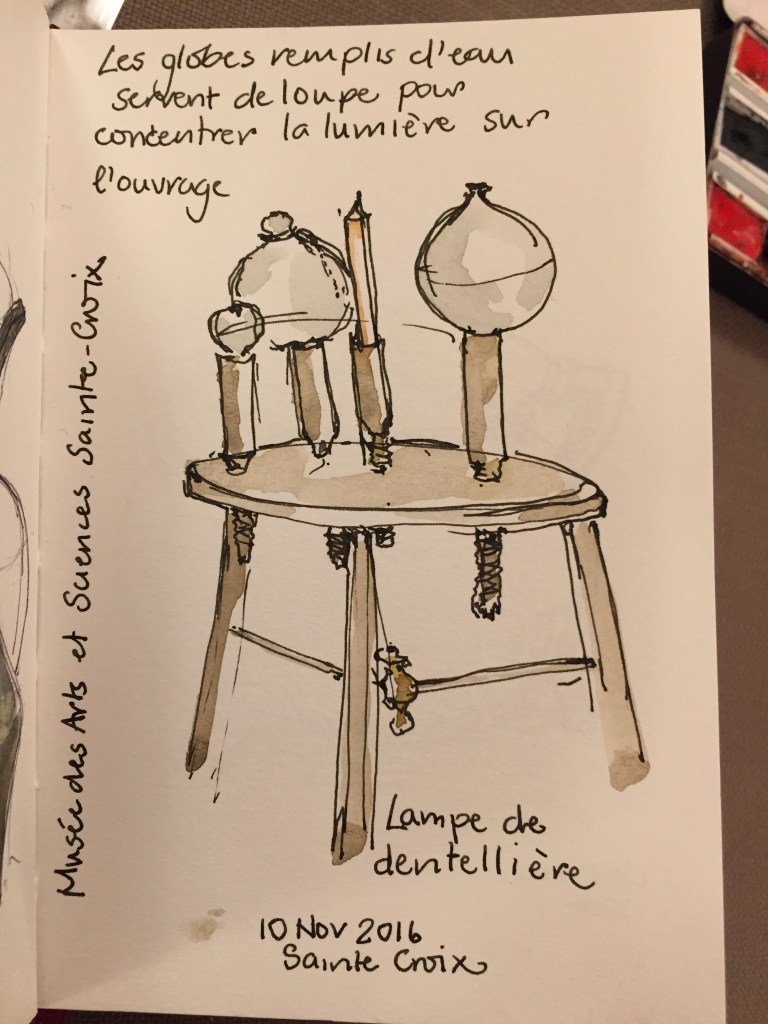 Les globes remplis d'eau
servent de loupe pour
concentrer la lumière sur
l'ouvrage
Musée des Arts et Sciences Sainte-Croix
Lampe de
dentellière
10 Nov 2016
Sainte Croix